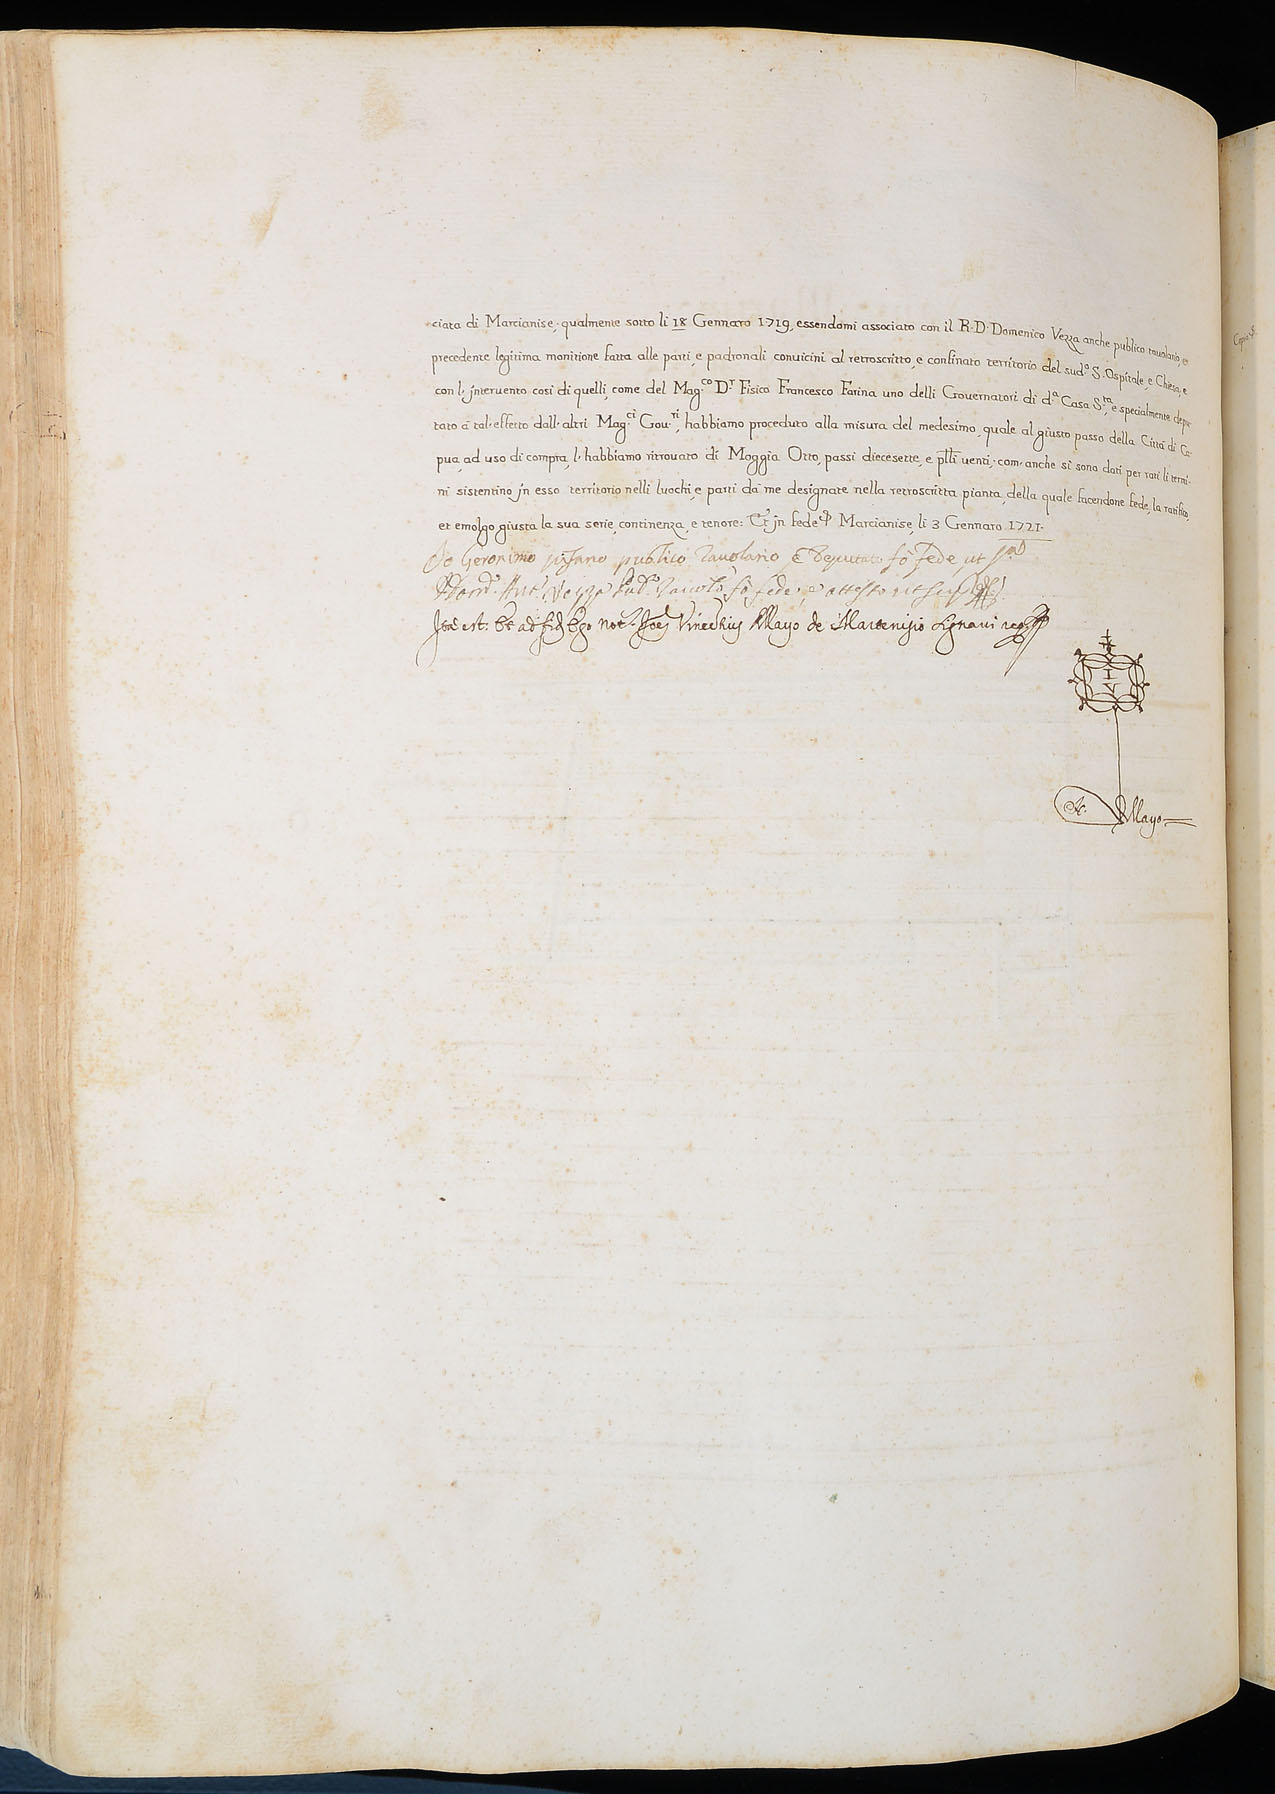 ciata di Marcianise, qualmente sotto li 18 Gennaro 1719, essendomi associato con il R. D. Domenico Vezza anche publico tauolario, e
precedente legitima monitione fatta alle parti, e padronali conuicini al retroscritto, e confinato territorio del sud.º S. Ospitale e Chiesa, e
con l'jnteruento così di quelli, come del Mag.co D.r Fisico Francesco Farina uno delli Gouernatori di d.a Casa S.ta, e specialmente depu-
tato a tal'effetto dall'altri Mag.ci Gou.ri, habbiamo proceduto alla misura del medesimo, quale al giusto passo della Città di Ca-
pua, ad uso di compra, l'habbiamo ritrouato di Moggia Otto, passi diecesette, e p̃lli uenti, com'anche si sono dati per rati li termi-
ni sistentino jn esso territorio nelli luochi, e parti da me designate nella retroscritta pianta, della quale facendone fede, la ratifico,
et emolgo giusta la sua serie, continenza, e tenore: Et jn fede Marcianise, li 3 Gennaro 1721.
Io Geronimo pisano publico Tauolario e Deputato fò fede ut s.a
Vezza Pub.º Tauol.º fò fede, e attesto ut sup.a
Ita est: Et ad fid. Ego Not.r Mayo de Marcenisio
I
V
Mayo
Copia